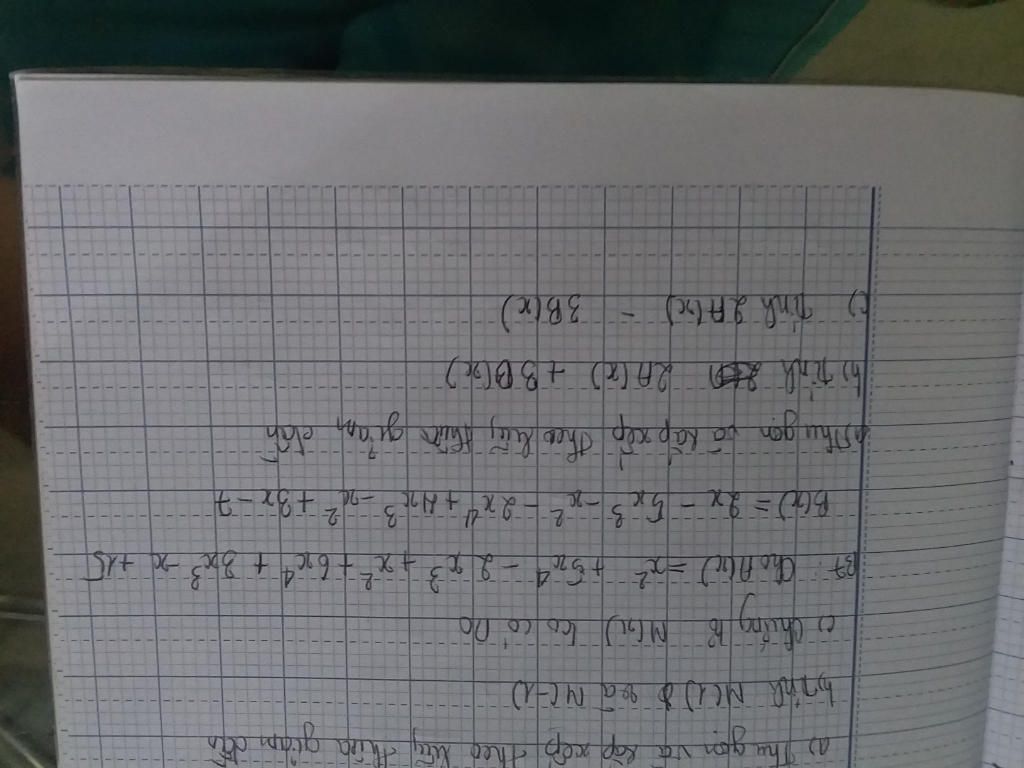 a) Thu gọn và sắp xếp theo lũy thừa giảm dần
b) Tính M(1) và M(-1)
c) Chứng tỏ M(x) ko có no
B7: Cho A(x) = x² + 5x⁴ - 2x³ + x² + 6x⁴ + 3x³ - x + 15
B(x) = 2x - 5x³ - x² - 2x⁴ + 4x³ - x² + 3x - 7
a) Thu gọn và sắp xếp theo lũy thừa giảm dần
b) tính 2A(x) + 3B(x)
c) tính 2A(x) - 3B(x)